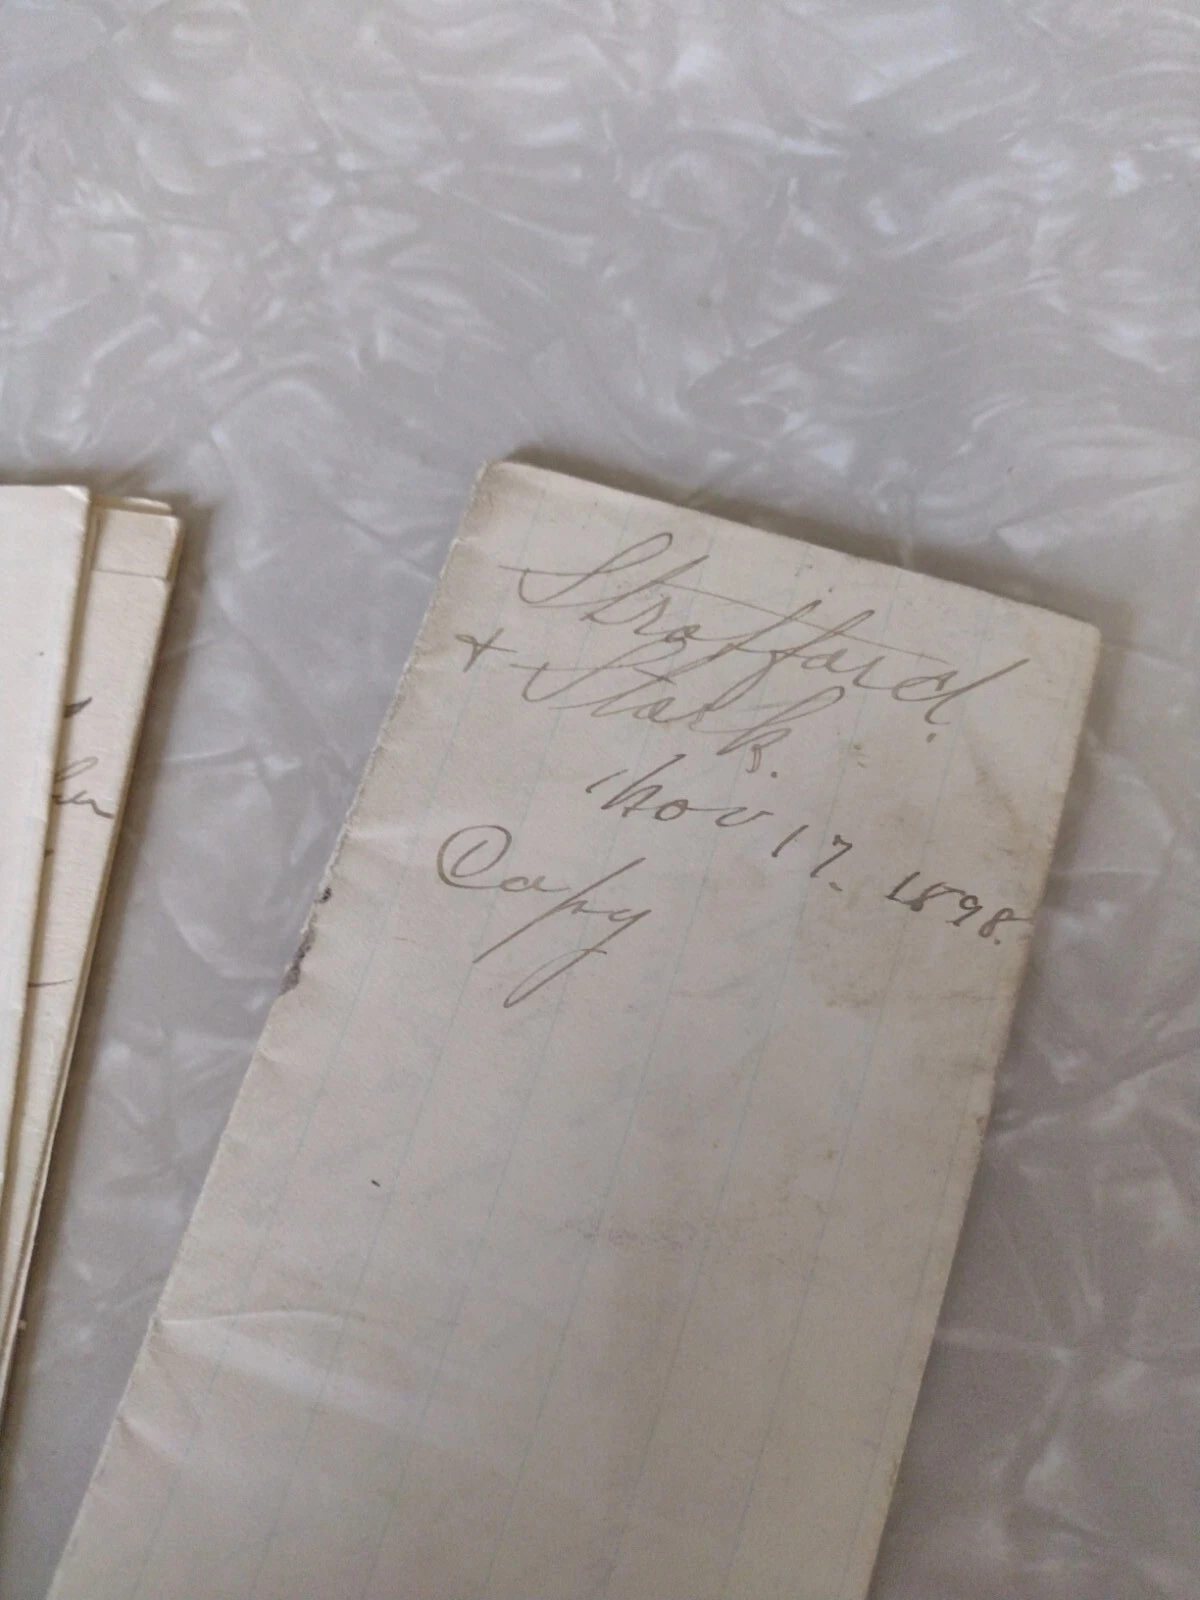 Stratford.
& Stark.
Nov 17. 1898.
Copy